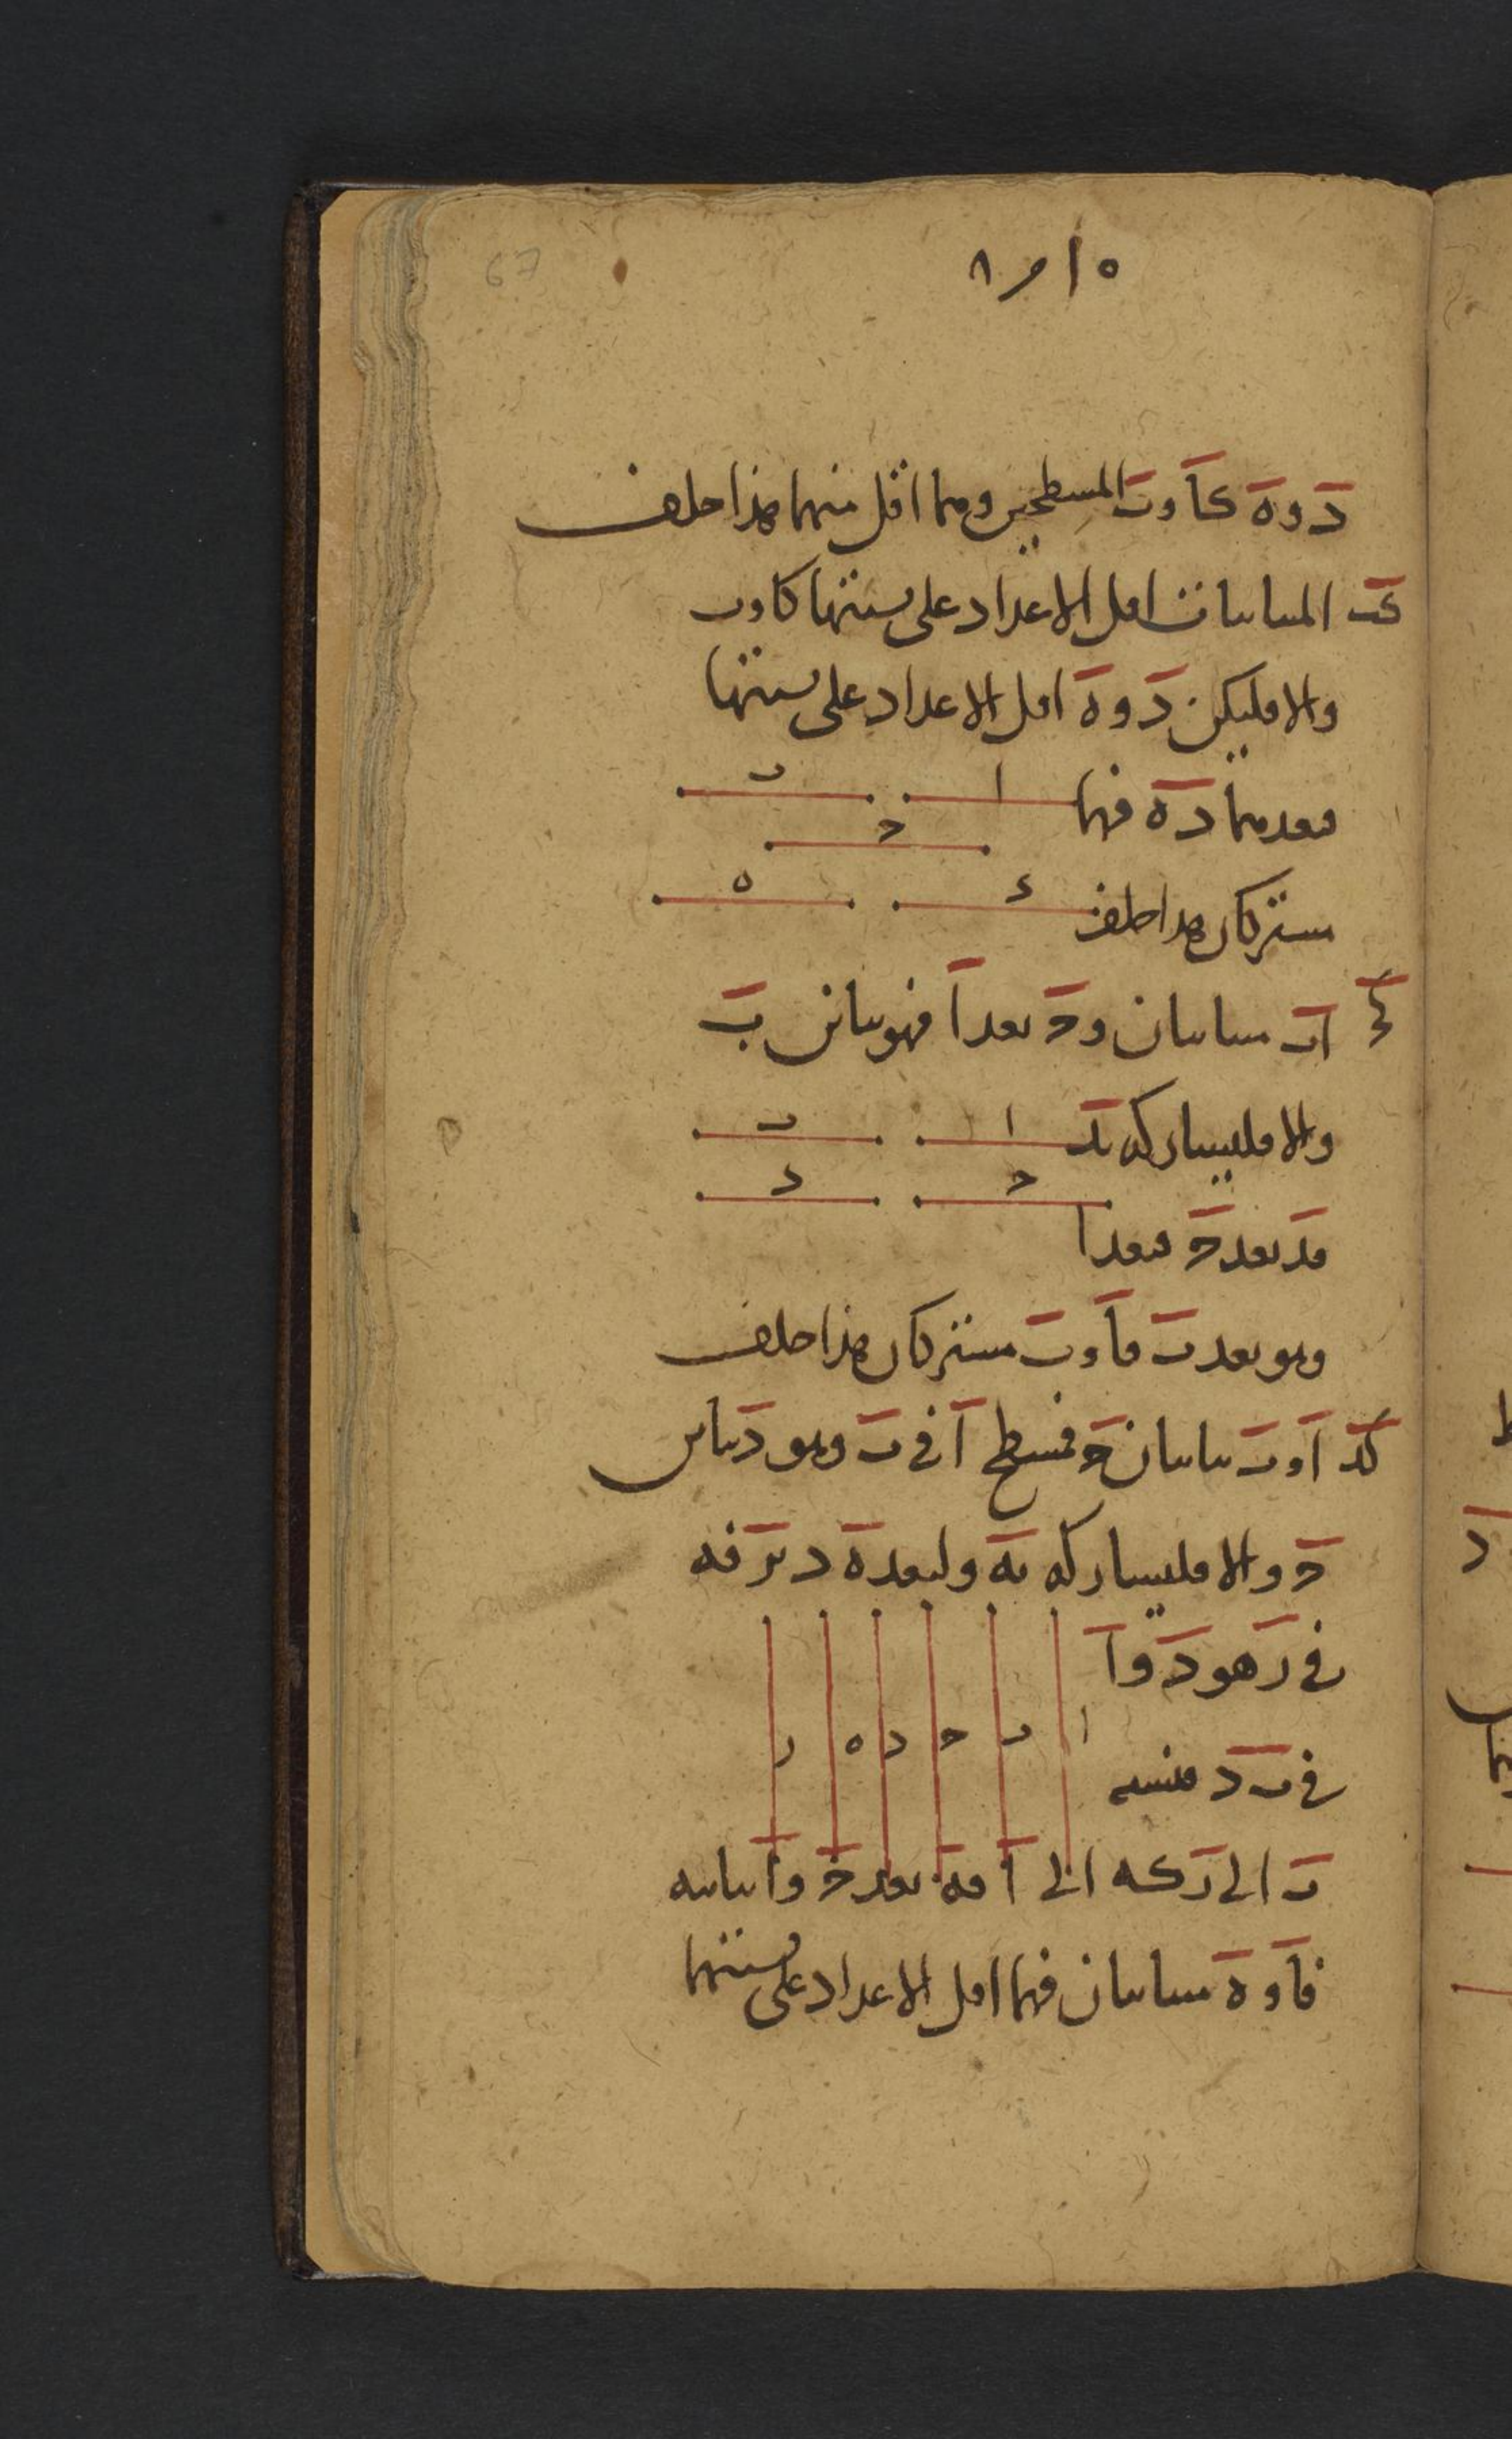 67
د وه كا وب المسطحين وهما اقل منهما هذا خلف
كب المتباينان اقل الاعداد على نسبتها كا وب
والا فليكن د وه اقل الاعداد على نسبتها
فيعدهما د ه فهما
ا ب
ح
مشتركان هذا خلف
د ه
كج ا ب متباينان وح يعد ا فهو يباين ب
والا فليشاركه بد
ا ب
ح د
فد يعد ح فيعد ا
وهو يعد ب فا وب مشتركان هذا خلف
كد ا وب يباينان ح فمسطح ا في ب وهو د يباين
ح والا فليشاركه به وليعد ه د بر فه
في ر هو د وا
ا ب ح د ه ر
في ب د فنسبة
ب الى ر كه الى ا فه يعد ح وا يباينه
فا وه متباينان فهما اقل الاعداد على نسبتهما